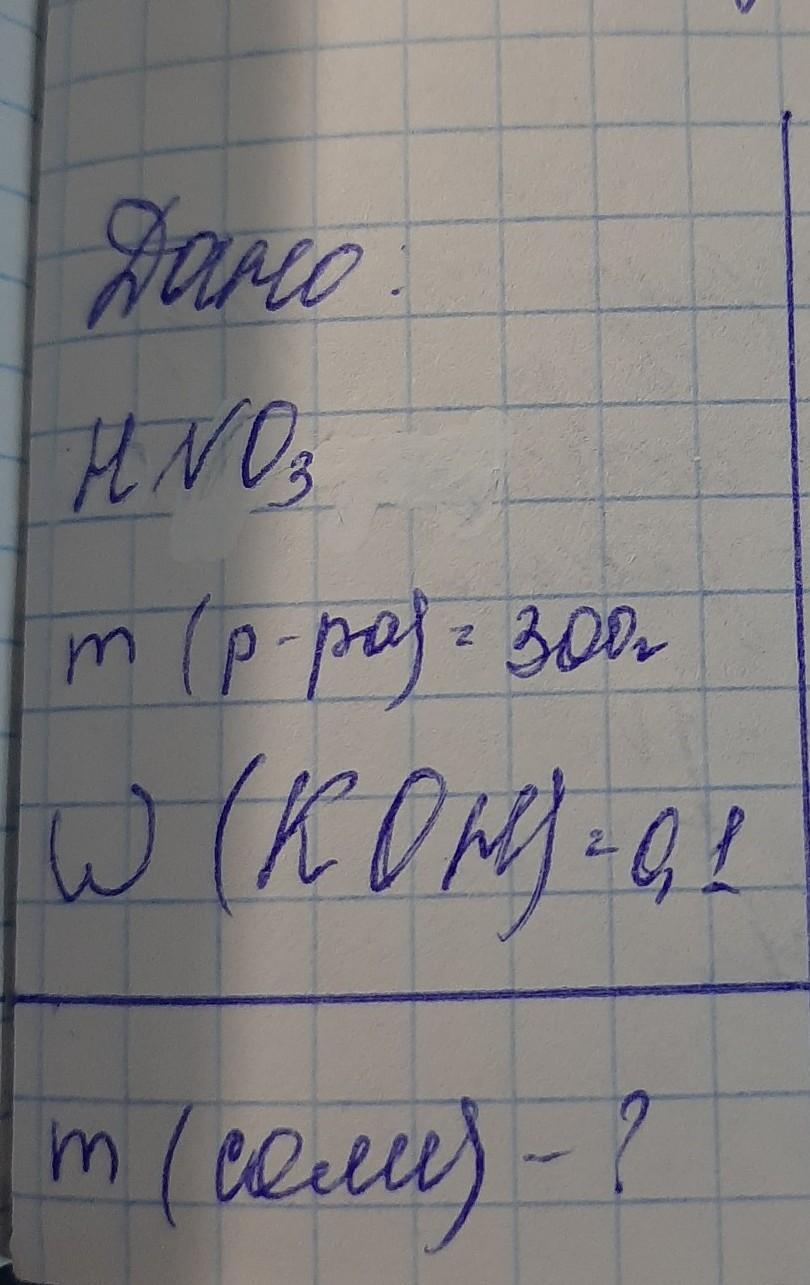 Дано:
HNO₃
m (р-ра) = 300г
W (KOH) = 0,1
m (соли) - ?